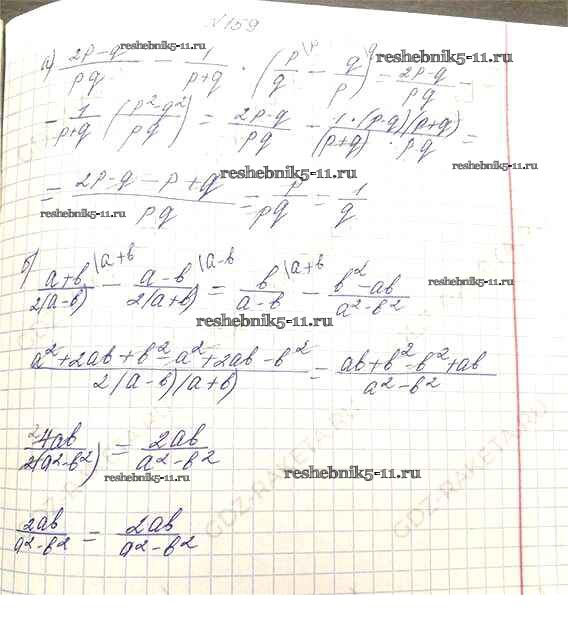 №159
а) (2p-q)/(pq) - 1/(p+q) · (p/q \p - q/p \q) = (2p-q)/(pq) -
- 1/(p+q) (p²-q²)/(pq) = (2p-q)/(pq) - (1·(p-q)(p+q))/((p+q)·pq) =
= (2p-q-p+q)/(pq) = p/(pq) = 1/q
б) (a+b)/(2(a-b)) \a+b - (a-b)/(2(a+b)) \a-b = b/(a-b) \a+b - (b²-ab)/(a²-b²)
(a²+2ab+b²-a²+2ab-b²)/(2(a-b)(a+b)) = (ab+b²-b²+ab)/(a²-b²)
²4ab/(2(a²-b²)) = 2ab/(a²-b²)
2ab/(a²-b²) = 2ab/(a²-b²)
reshebnik5-11.ru
reshebnik5-11.ru
reshebnik5-11.ru
reshebnik5-11.ru
reshebnik5-11.ru
reshebnik5-11.ru
reshebnik5-11.ru
reshebnik5-11.ru
reshebnik5-11.ru
reshebnik5-11.ru
reshebnik5-11.ru
GDZ-RAKETA.RU
GDZ-RAKETA.RU
GDZ-RAKETA.RU